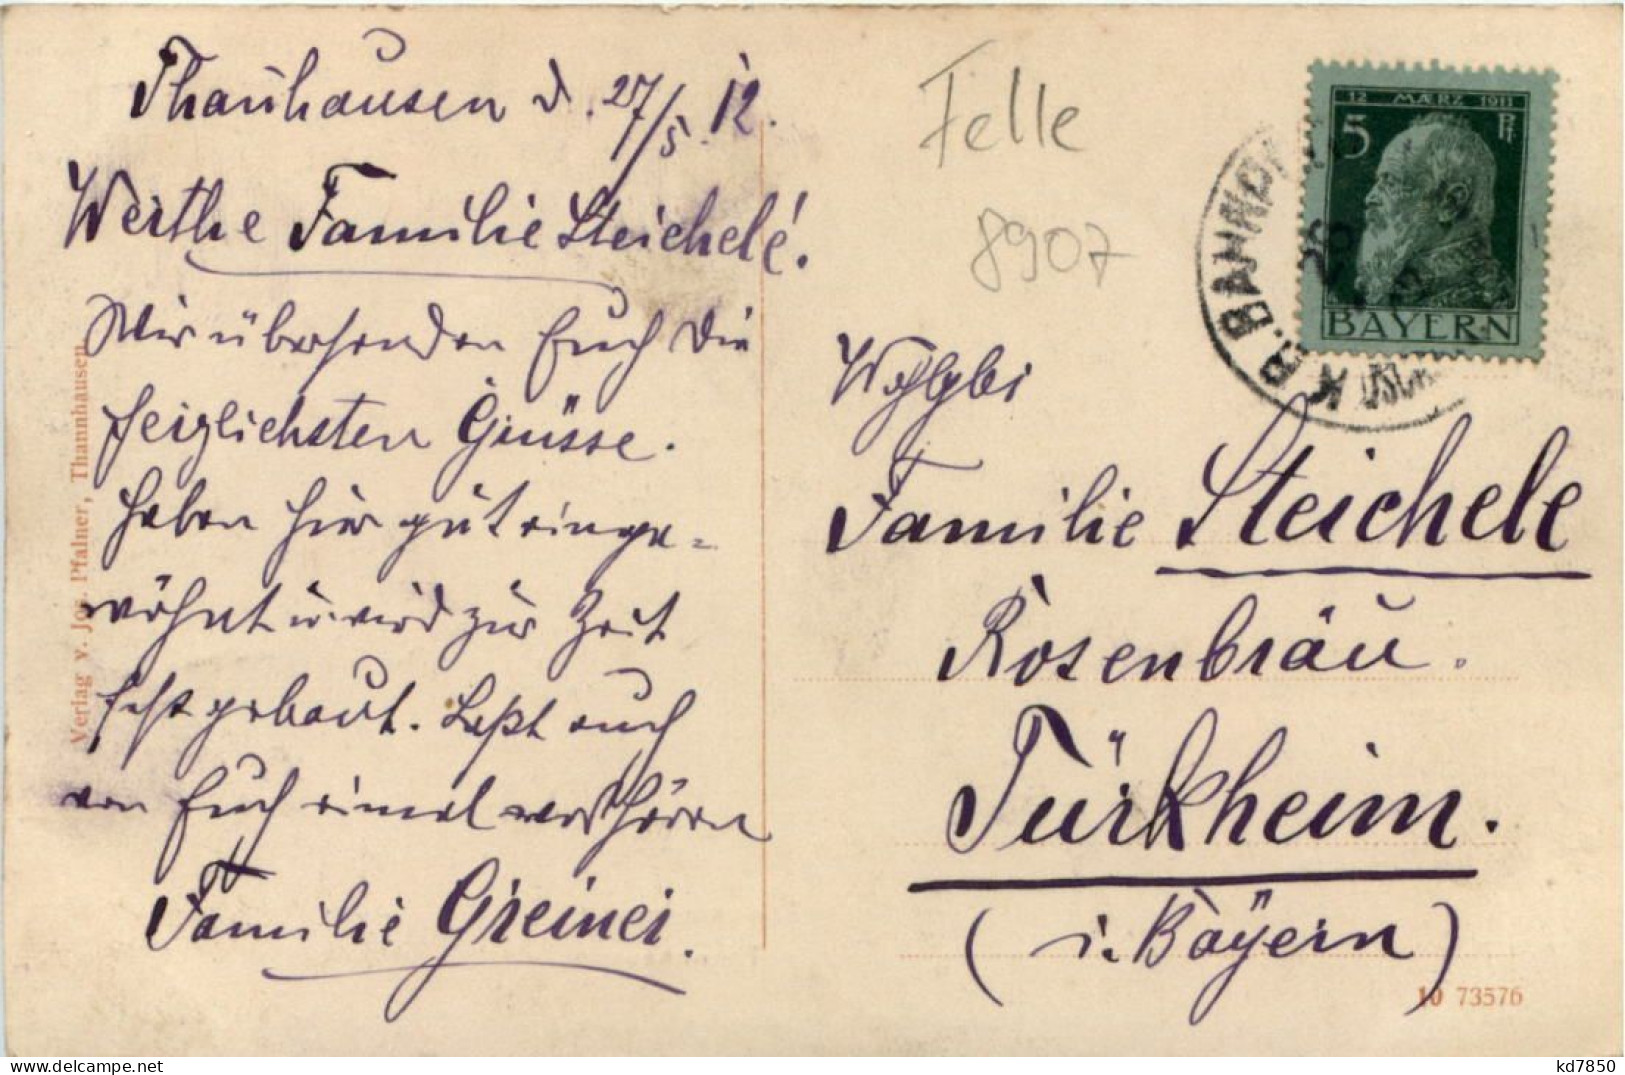 Thanhausen d. 27/5. 12.
Werthe Familie Steichele!
Wir übersenden Euch die
herzlichsten Grüsse.
Haben hier gut einge=
wöhnt u. wird zur Zeit
fest gebaut. Laßt auch
von Euch einmal was hören
Familie Greiner.
Verlag v. Jos. Pfalner, Thannhausen
Felle
8907
12 MÆRZ 1911
5 Pf.
BAYERN
K.B. BAHNPOST
Wohlgb.
Familie Steichele
Rosenbräu.
Türkheim.
(i. Bayern)
10 73576
kd7850